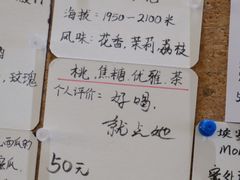 海拔：1950-2100米
风味：花香，茉莉，荔枝
桃，焦糖，优雅，茶
个人评价：好喝，
就点她
50元
玫瑰
西瓜的